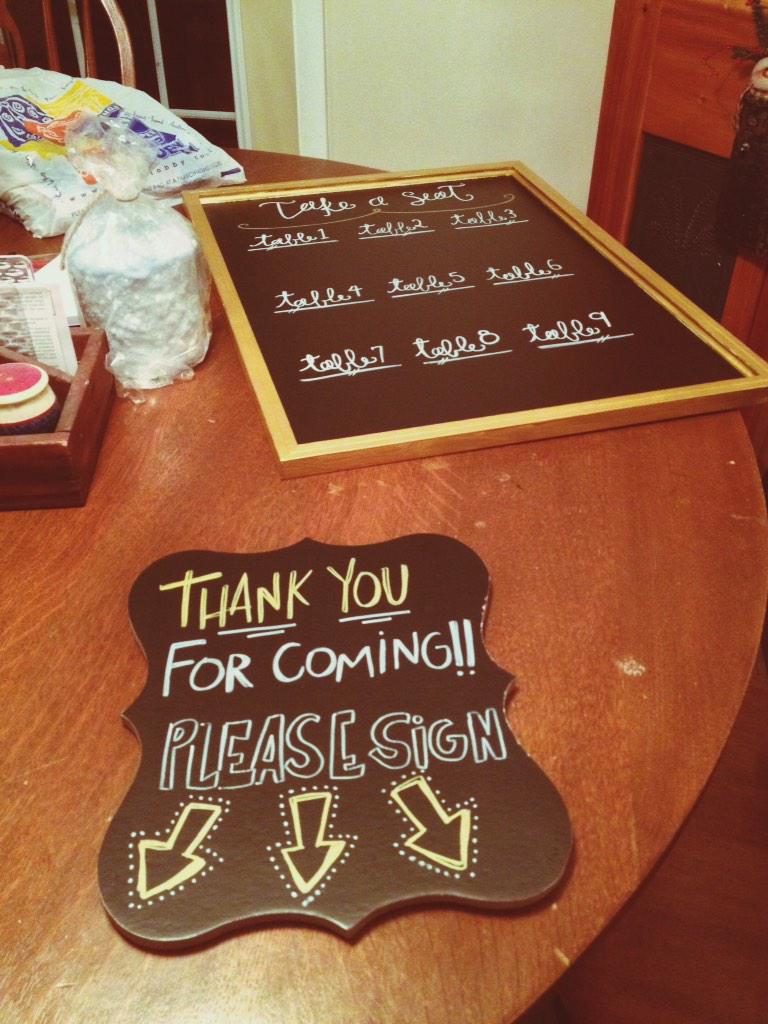 Take a Seat
table1 table2 table3
table4 table5 table6
table7 table8 table9
THANK YOU
FOR COMING!!
PLEASE SIGN